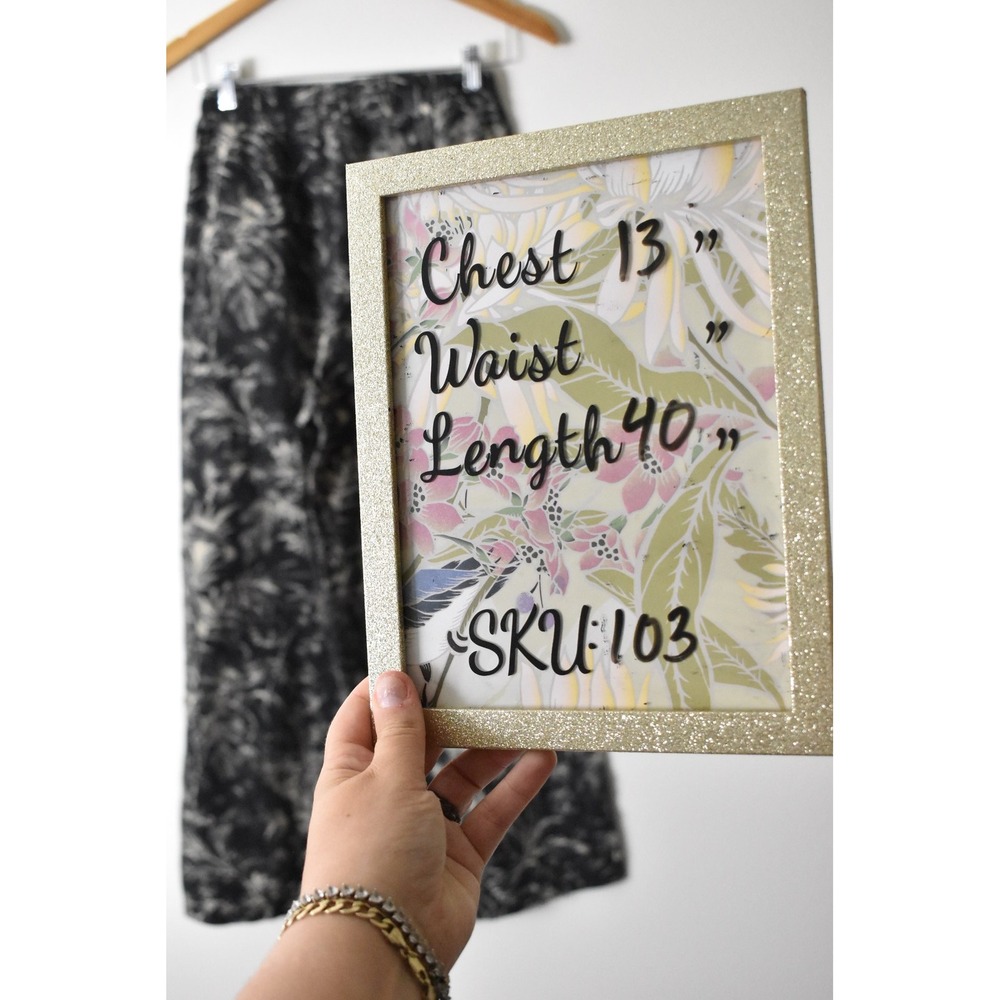 Chest 13 ”
Waist ”
Length 40 ”
SKU: 103